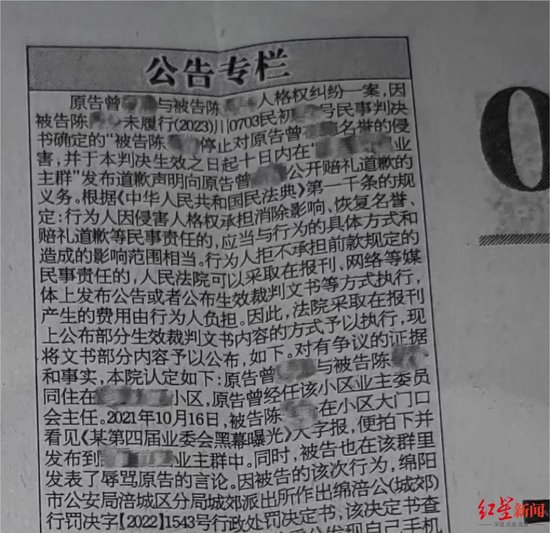 公告专栏
原告曾 与被告陈 人格权纠纷一案,因
被告陈 未履行(2023)川0703民初 号民事判决
书确定的“被告陈 停止对原告曾 名誉的侵
害,并于本判决生效之日起十日内在“ 业
主群”发布道歉声明向原告曾 公开赔礼道歉的
义务。根据《中华人民共和国民法典》第一千条的规
定:行为人因侵害人格权承担消除影响、恢复名誉、
赔礼道歉等民事责任的,应当与行为的具体方式和
造成的影响范围相当。行为人拒不承担前款规定的
民事责任的,人民法院可以采取在报刊、网络等媒
体上发布公告或者公布生效裁判文书等方式执行,
产生的费用由行为人负担。因此,法院采取在报刊
上公布部分生效裁判文书内容的方式予以执行,现
将文书部分内容予以公布,如下。对有争议的证据
和事实,本院认定如下:原告曾 与被告陈
同住在 小区,原告曾经任该小区业主委员
会主任。2021年10月16日,被告陈 在小区大门口
看见《某第四届业委会黑幕曝光》大字报,便拍下并
发布到 业主群中。同时,被告也在该群里
发表了辱骂原告的言论。因被告的该次行为,绵阳
市公安局涪城区分局城郊派出所作出绵涪公(城郊)
行罚决字【2022】1543号行政处罚决定书,该决定书查
发现自己手机
红星新闻